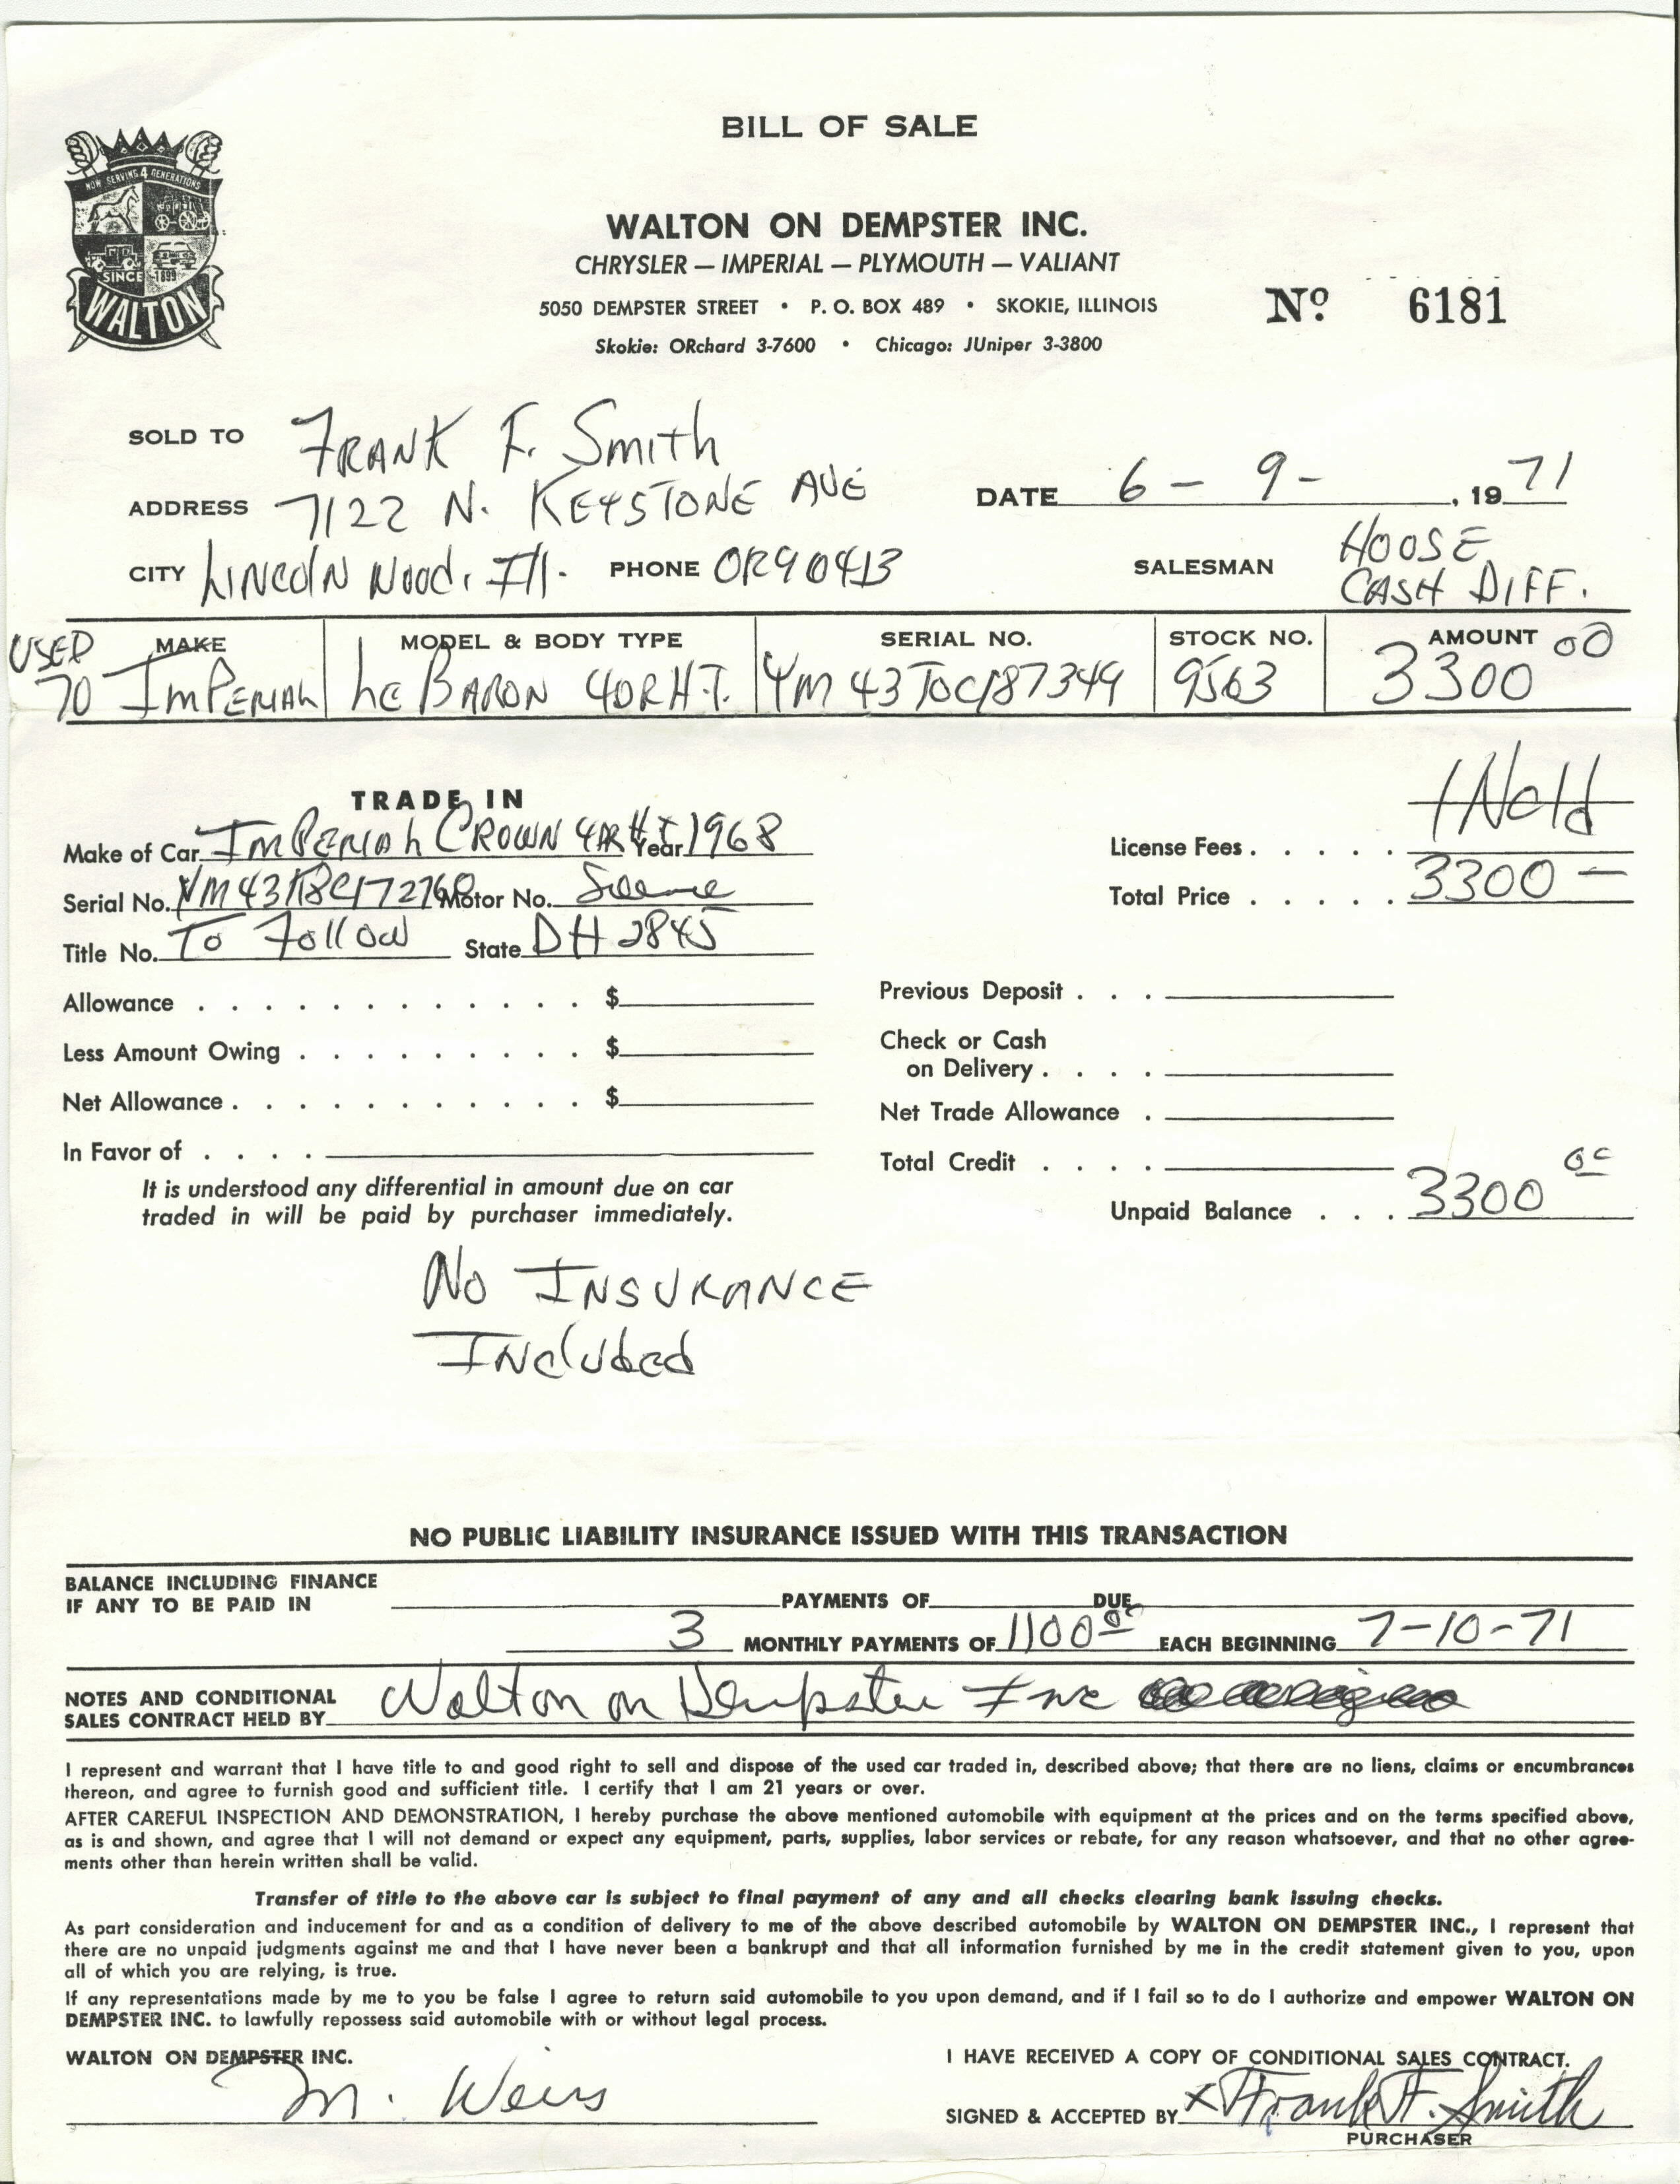 BILL OF SALE
NOW SERVING 4 GENERATIONS
SINCE 1899
WALTON
WALTON ON DEMPSTER INC.
CHRYSLER — IMPERIAL — PLYMOUTH — VALIANT
5050 DEMPSTER STREET • P. O. BOX 489 • SKOKIE, ILLINOIS
Skokie: ORchard 3-7600 • Chicago: JUniper 3-3800
Nº 6181
SOLD TO FRANK F. Smith
ADDRESS 7122 N. KEYSTONE AVE
DATE 6 - 9 - , 19 71
CITY LINColN Wood, Ill. PHONE OR90413
SALESMAN HOOSE
CASH DIFF.
USED MAKE MODEL & BODY TYPE SERIAL NO. STOCK NO. AMOUNT
70 ImPERIAL Le BARON 4DR H.T. YM43T0C187349 9563 3300 00
TRADE IN
Make of Car ImPERIAL CROWN 4DR HT Year 1968
Serial No. YM43K8C172760 Motor No. Same
Title No. To Follow State DH 2845
Allowance . . . . . . . . . . . . $
Less Amount Owing . . . . . . . . . $
Net Allowance . . . . . . . . . . . $
In Favor of . . . .
It is understood any differential in amount due on car
traded in will be paid by purchaser immediately.
License Fees . . . . . INcld
Total Price . . . . . 3300 —
Previous Deposit . . .
Check or Cash
on Delivery . . . .
Net Trade Allowance .
Total Credit . . . .
Unpaid Balance . . . 3300 00
No INSURANCE
INcluded
NO PUBLIC LIABILITY INSURANCE ISSUED WITH THIS TRANSACTION
BALANCE INCLUDING FINANCE
IF ANY TO BE PAID IN PAYMENTS OF DUE
3 MONTHLY PAYMENTS OF 1100 00 EACH BEGINNING 7-10-71
NOTES AND CONDITIONAL
SALES CONTRACT HELD BY Walton on Dempster Inc
I represent and warrant that I have title to and good right to sell and dispose of the used car traded in, described above; that there are no liens, claims or encumbrances
thereon, and agree to furnish good and sufficient title. I certify that I am 21 years or over.
AFTER CAREFUL INSPECTION AND DEMONSTRATION, I hereby purchase the above mentioned automobile with equipment at the prices and on the terms specified above,
as is and shown, and agree that I will not demand or expect any equipment, parts, supplies, labor services or rebate, for any reason whatsoever, and that no other agree-
ments other than herein written shall be valid.
Transfer of title to the above car is subject to final payment of any and all checks clearing bank issuing checks.
As part consideration and inducement for and as a condition of delivery to me of the above described automobile by WALTON ON DEMPSTER INC., I represent that
there are no unpaid judgments against me and that I have never been a bankrupt and that all information furnished by me in the credit statement given to you, upon
all of which you are relying, is true.
If any representations made by me to you be false I agree to return said automobile to you upon demand, and if I fail so to do I authorize and empower WALTON ON
DEMPSTER INC. to lawfully repossess said automobile with or without legal process.
WALTON ON DEMPSTER INC.
M. Weiss
I HAVE RECEIVED A COPY OF CONDITIONAL SALES CONTRACT.
SIGNED & ACCEPTED BY X Frank F. Smith
PURCHASER